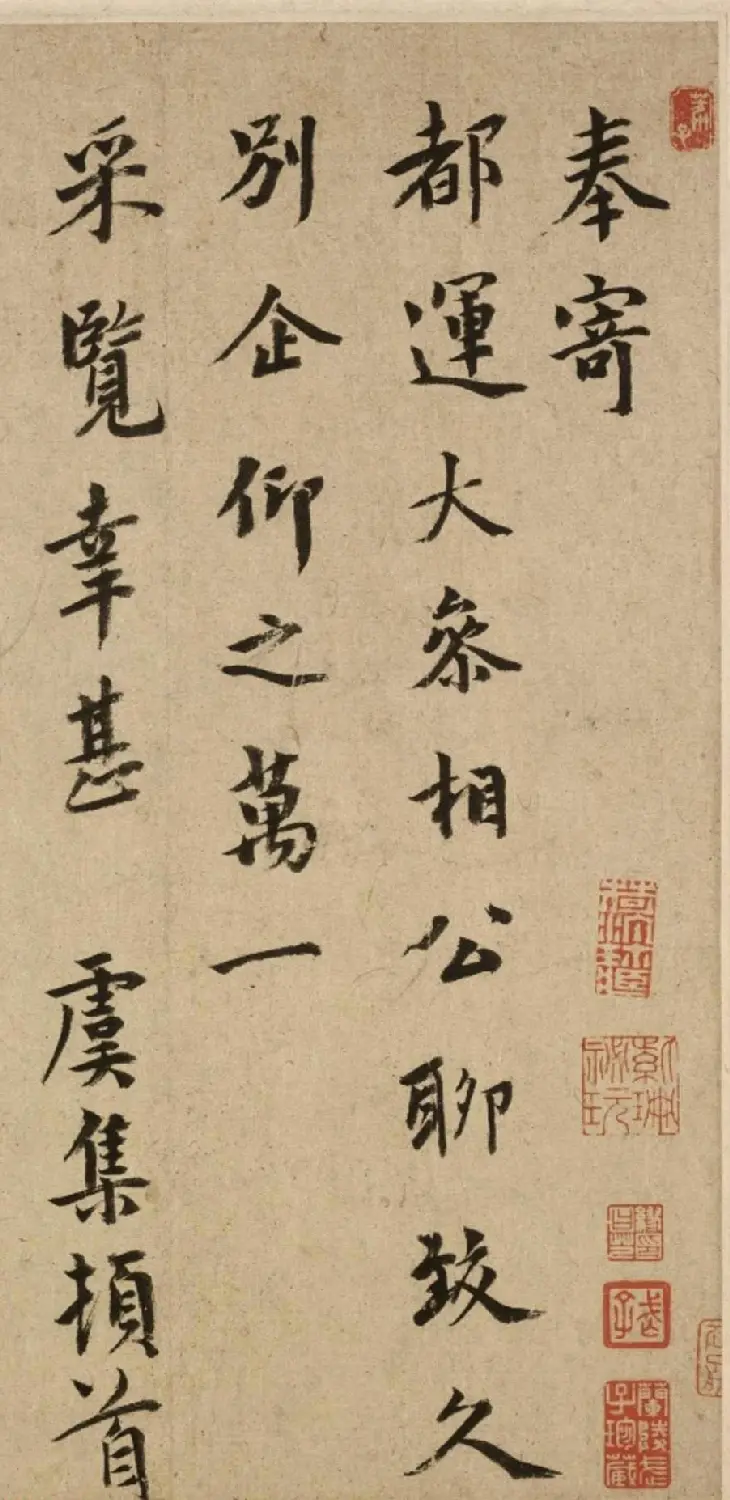 奉寄
都運大參相公聊致久
別企仰之萬一
采覽幸甚 虞集頓首